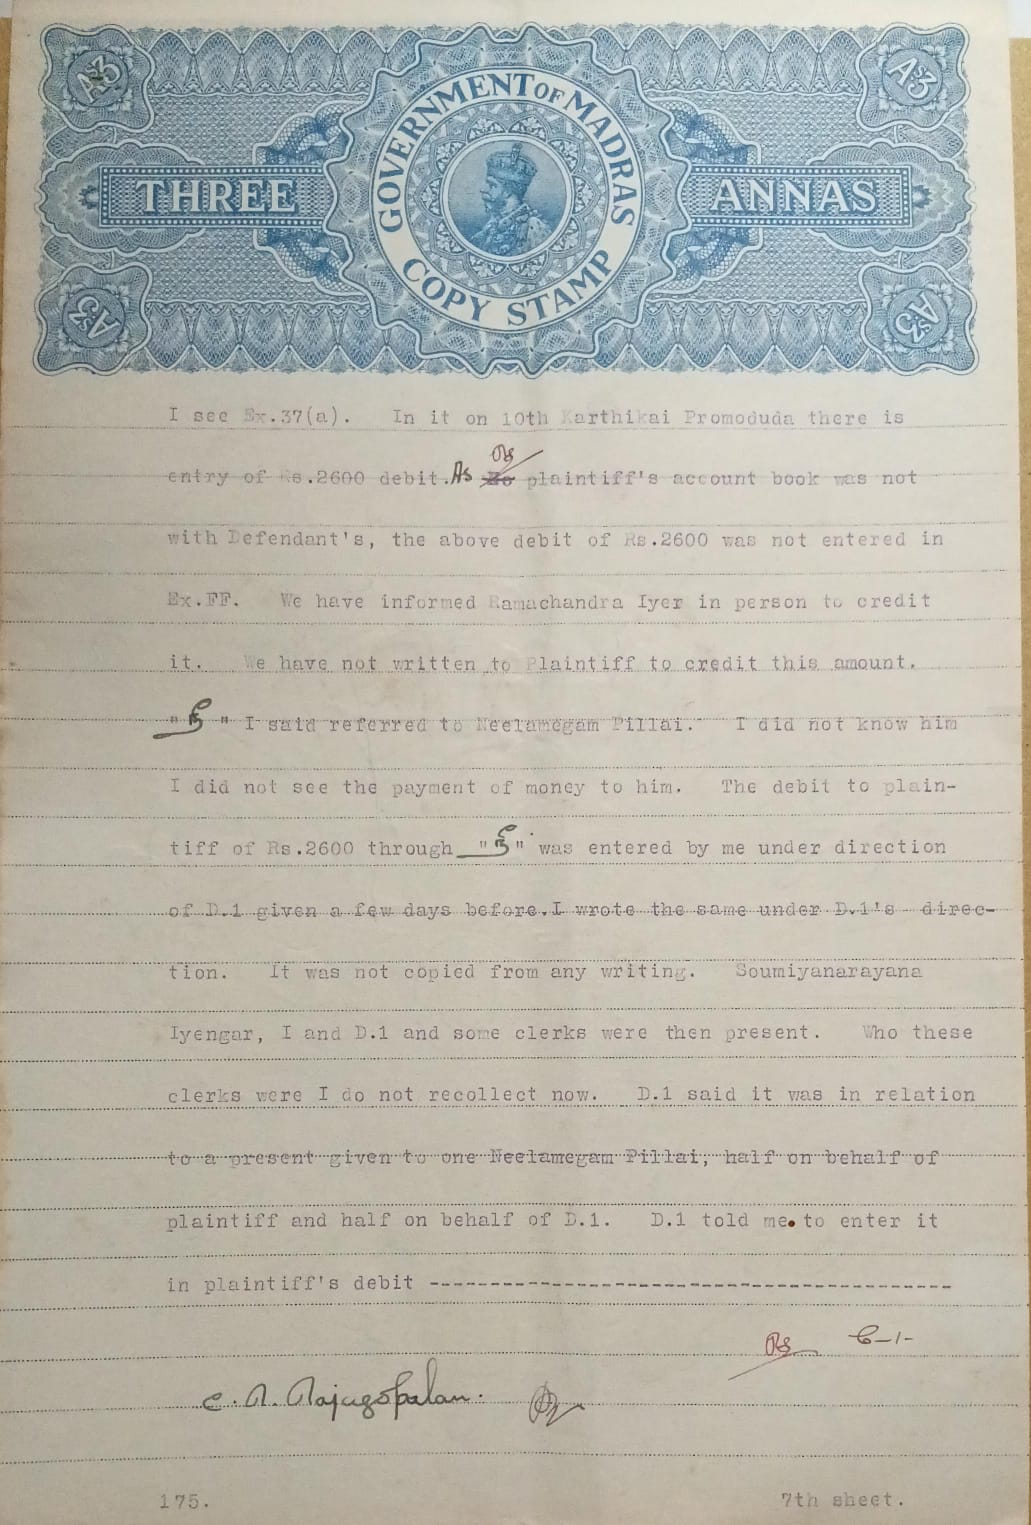 As 3 As 3
GOVERNMENT OF MADRAS
THREE ANNAS
COPY STAMP
As 3 As 3
I see Ex.37(a). In it on 10th Karthikai Promoduda there is
entry of Rs.2600 debit. As plaintiff's account book was not
with Defendant's, the above debit of Rs.2600 was not entered in
Ex.FF. We have informed Ramachandra Iyer in person to credit
it. We have not written to Plaintiff to credit this amount.
"நீ" I said referred to Neelamegam Pillai. I did not know him
I did not see the payment of money to him. The debit to plain-
tiff of Rs.2600 through "நீ" was entered by me under direction
of D.1 given a few days before. I wrote the same under D.1's direc-
tion. It was not copied from any writing. Soumiyanarayana
Iyengar, I and D.1 and some clerks were then present. Who these
clerks were I do not recollect now. D.1 said it was in relation
to a present given to one Neelamegam Pillai, half on behalf of
plaintiff and half on behalf of D.1. D.1 told me to enter it
in plaintiff's debit -------------------------------------------
C-1-
C. R. Rajagopalan.
175. 7th sheet.